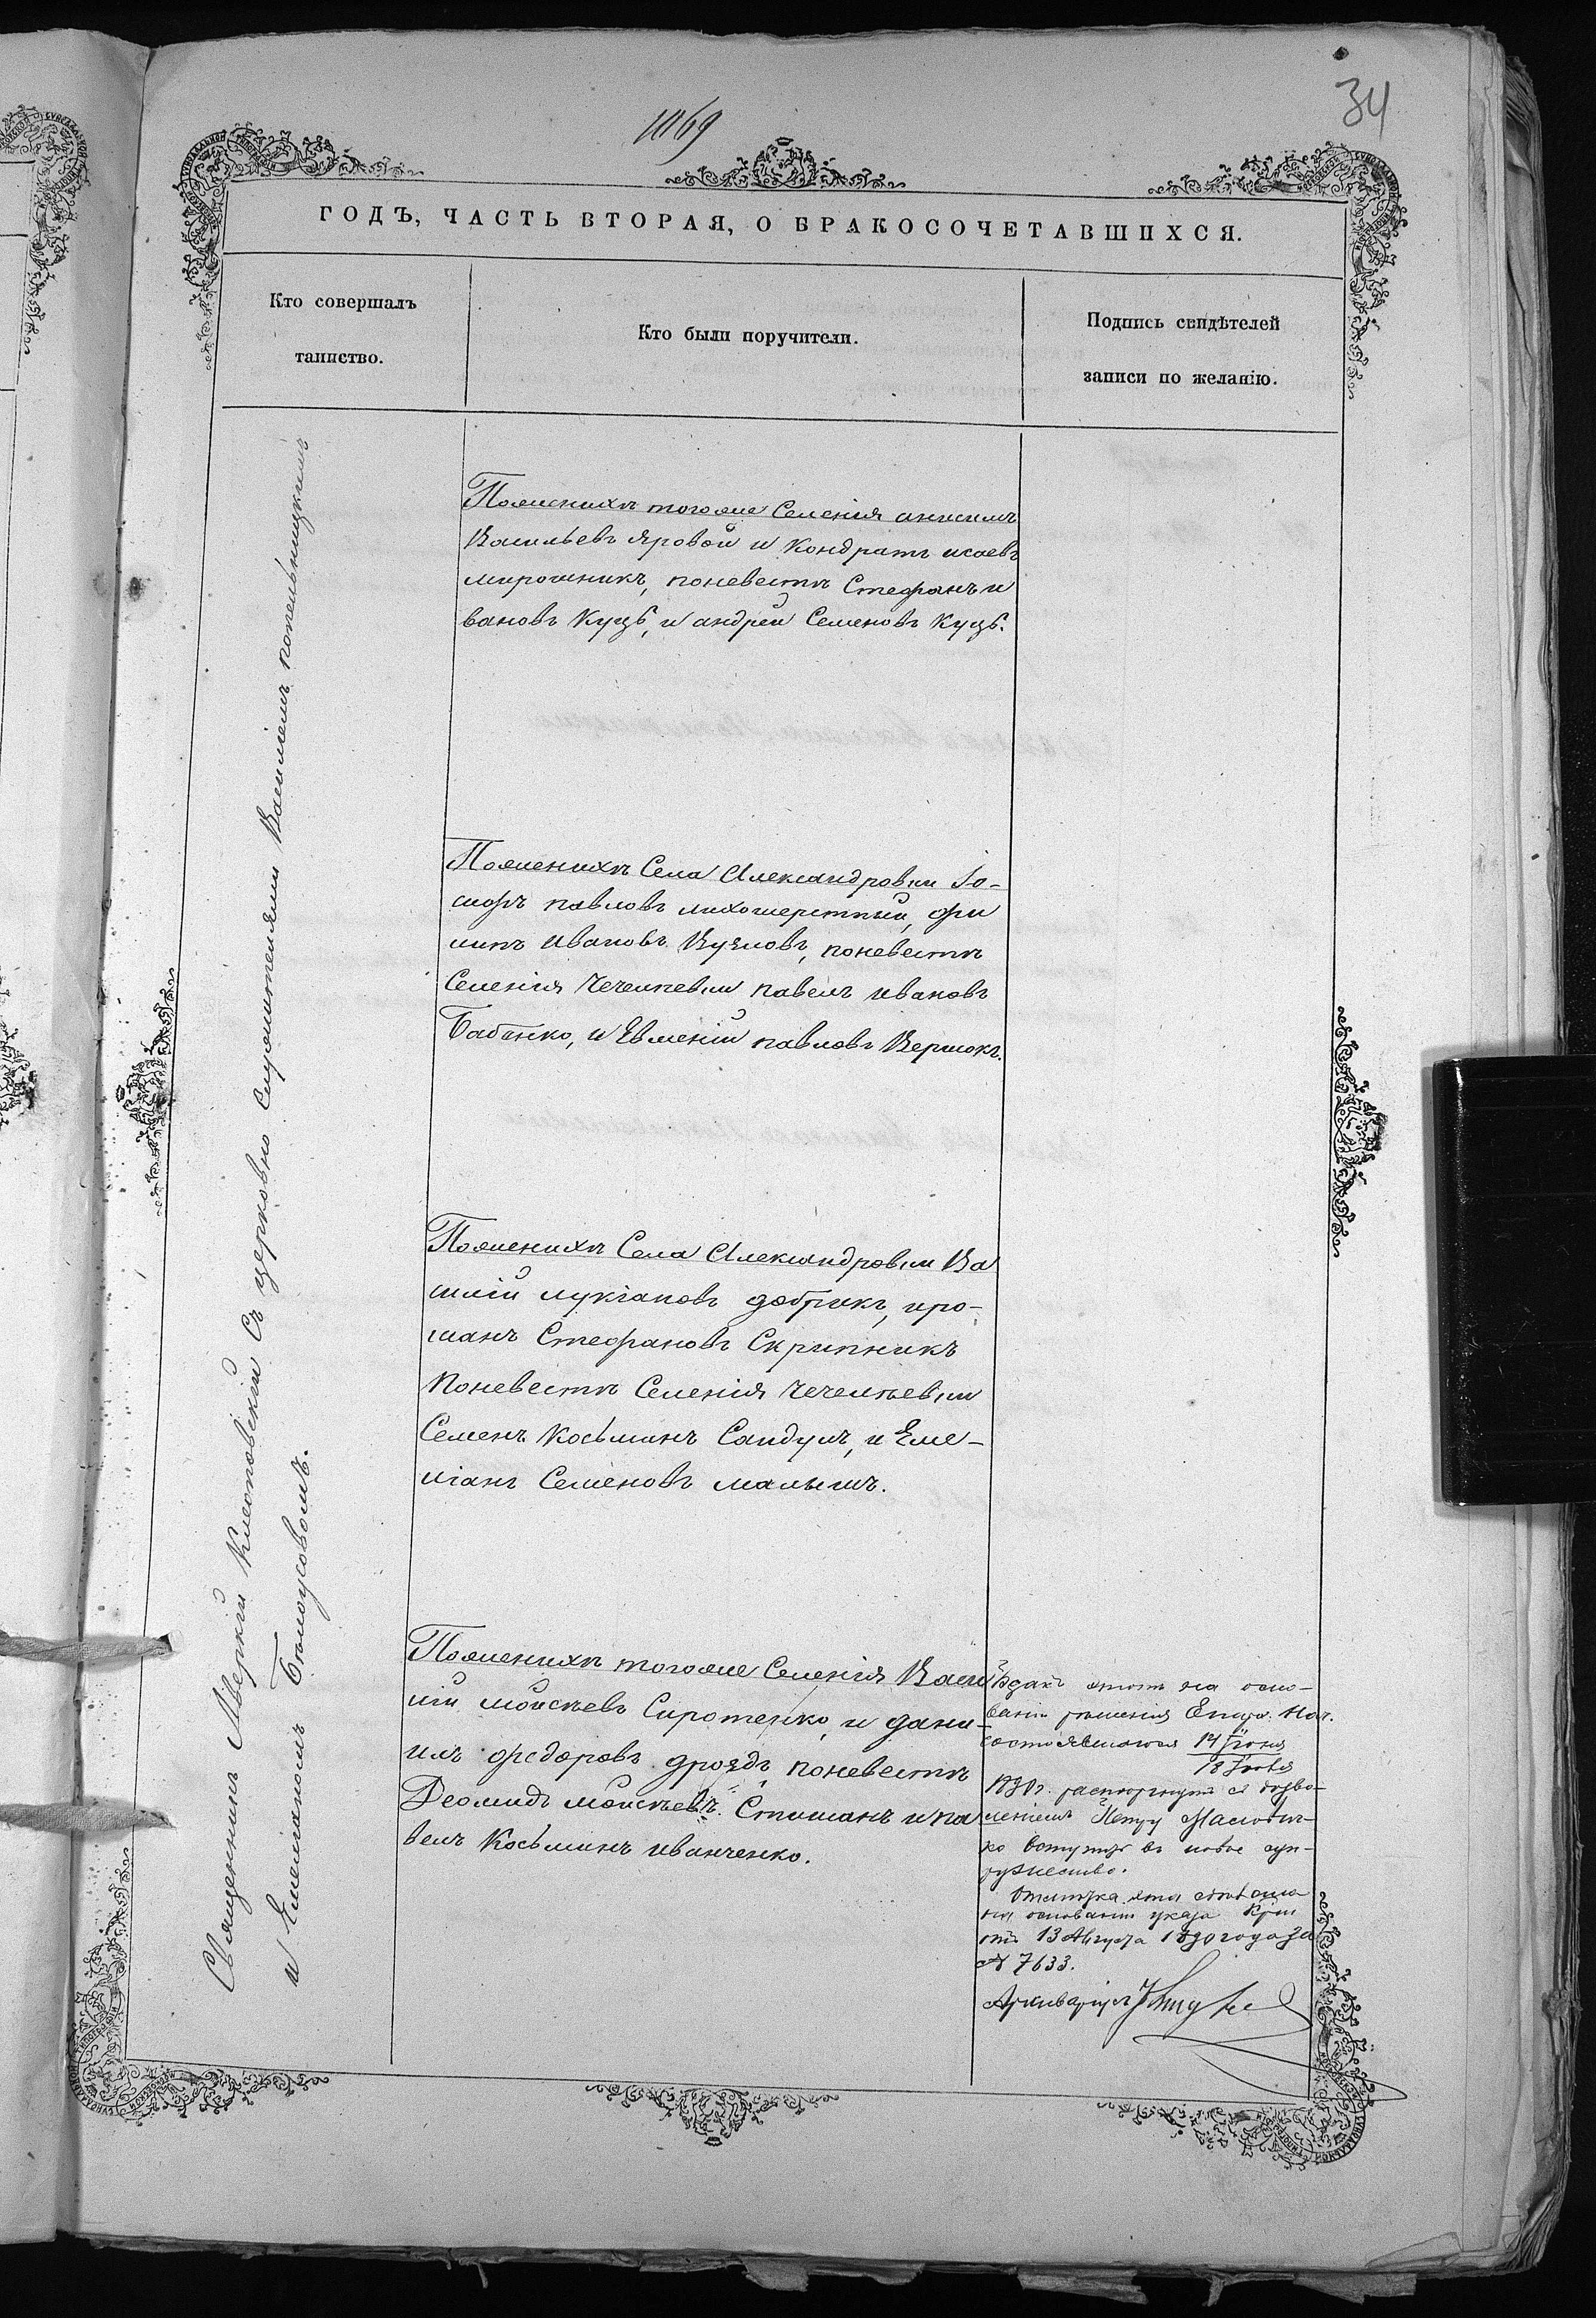 34
1169
ГОДЪ, ЧАСТЬ ВТОРАЯ, О БРАКОСОЧЕТАВШИХСЯ.
Кто совершалъ
таинство.
Кто были поручители.
Подпись свидѣтелей
записи по желанію.
Священникъ Аверкій Клеоповскій Съ церковно служителями Василіемъ
и Емеліаномъ Бѣлоусовомъ.
Поженихѣ тогоже Селенія анисимъ
Васильевъ яровой и Кондратъ исаевъ
мирошникъ, поневестѣ Стефанъ и
вановъ Куцъ, и андрей Семеновъ Куцъ.
Поженихѣ Села Александровки Іо-
сифъ павловъ лихошерстный, фи
липъ ивановъ Козловъ, поневестѣ
Селенія Чечелѣевки павелъ ивановъ
Бабенко, и Евменій павловъ Вершокъ.
Поженихѣ Села Александровки Ва
силій лукіановъ добрикъ, и ро-
манъ Стефановъ Скрипникъ
Поневестѣ Селенія Чечелѣевки
Семенъ Косьминъ Сандулъ, и Еме-
ліанъ Семеновъ малышъ.
Поженихѣ тогоже Селенія Васи
лій моисѣевъ Сиротенко, и дани-
илъ федоровъ дроздъ, поневестѣ
Деомидъ моисѣевъ и па
велъ Косьминъ иванченко.
бракъ этотъ на осно-
ваніи рѣшенія Епарх. Нач.
состоявшагося 14 Іюня
18 Іюля
1890г. расторгнутъ съ дозво-
леніемъ Петру
вступить въ новое суп-
ружество.
Отмѣтка эта сдѣлана
на основаніи указа
отъ 13 Августа 1890 года за
№ 7633.
Архиваріусъ